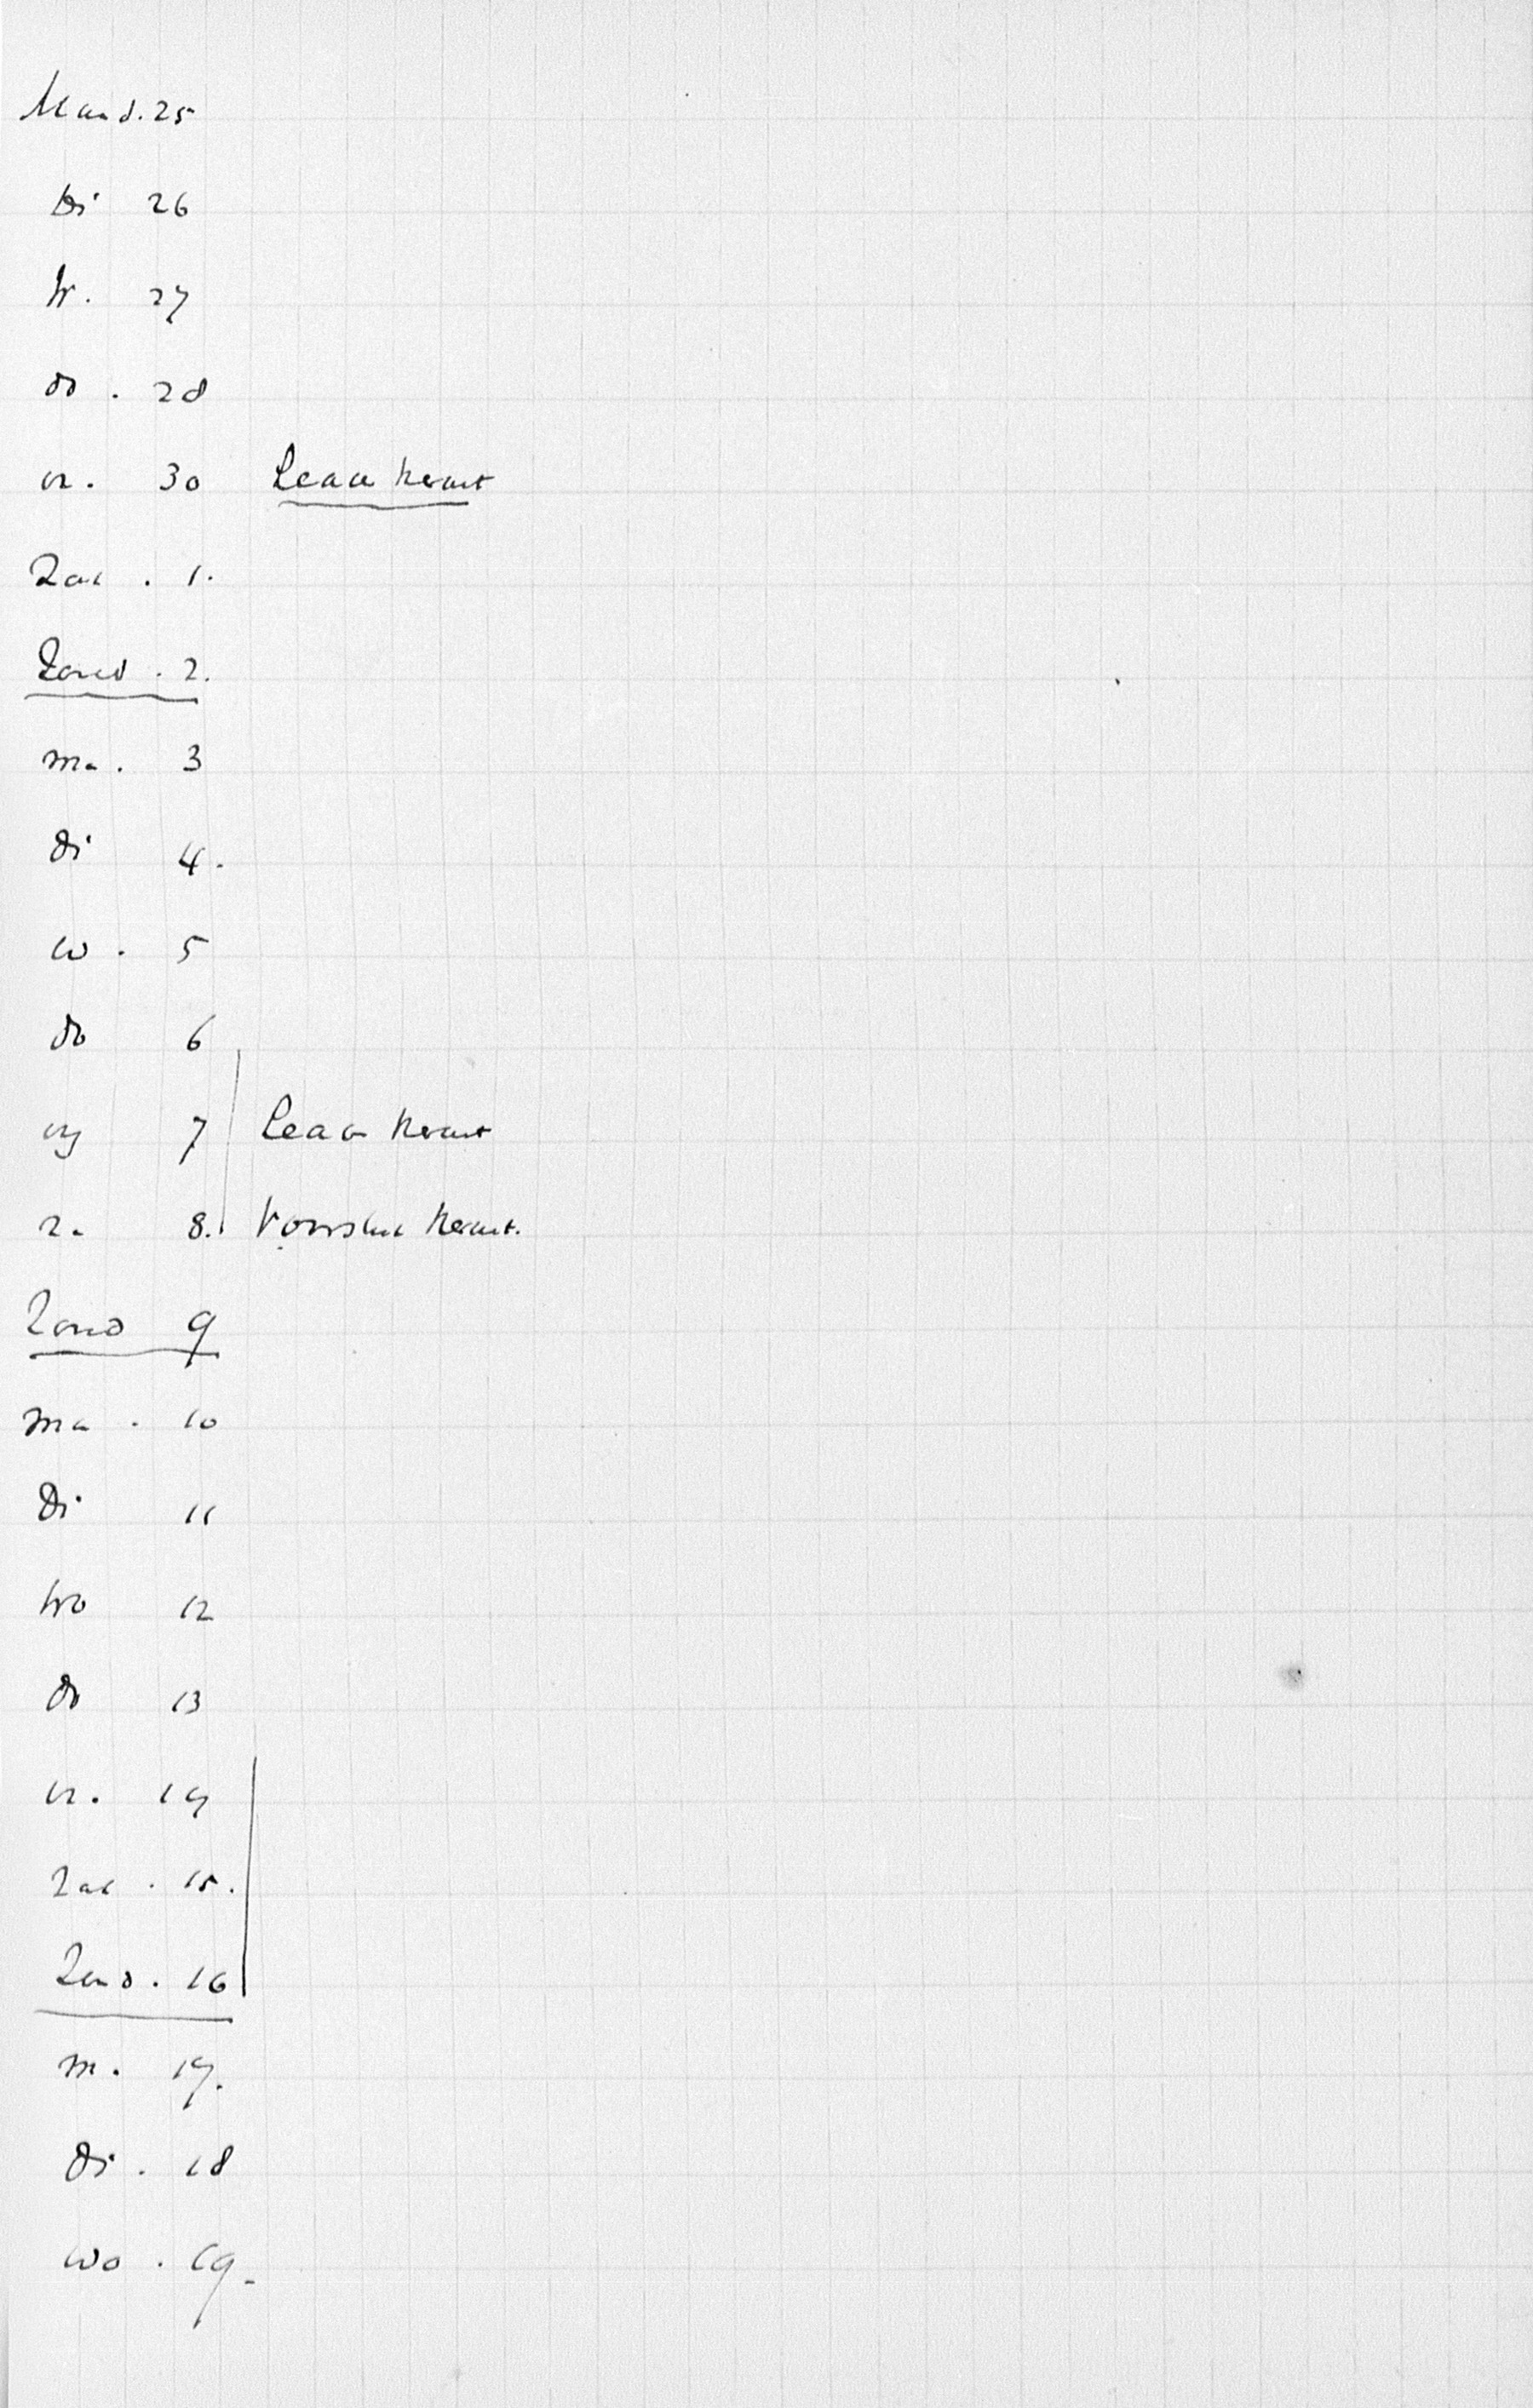 Maand. 25
Di 26
W. 27
do. 28
vr. 30 Leaa komt
Zat. 1.
Zond. 2.
ma. 3
di 4.
w. 5
do 6
vrij 7 Leaa komt
za 8. komt.
Zond 9
ma. 10
Di 11
Wo 12
do 13
vr. 14
Zat. 15.
Zond. 16
m. 17.
di. 18
wo. 19-